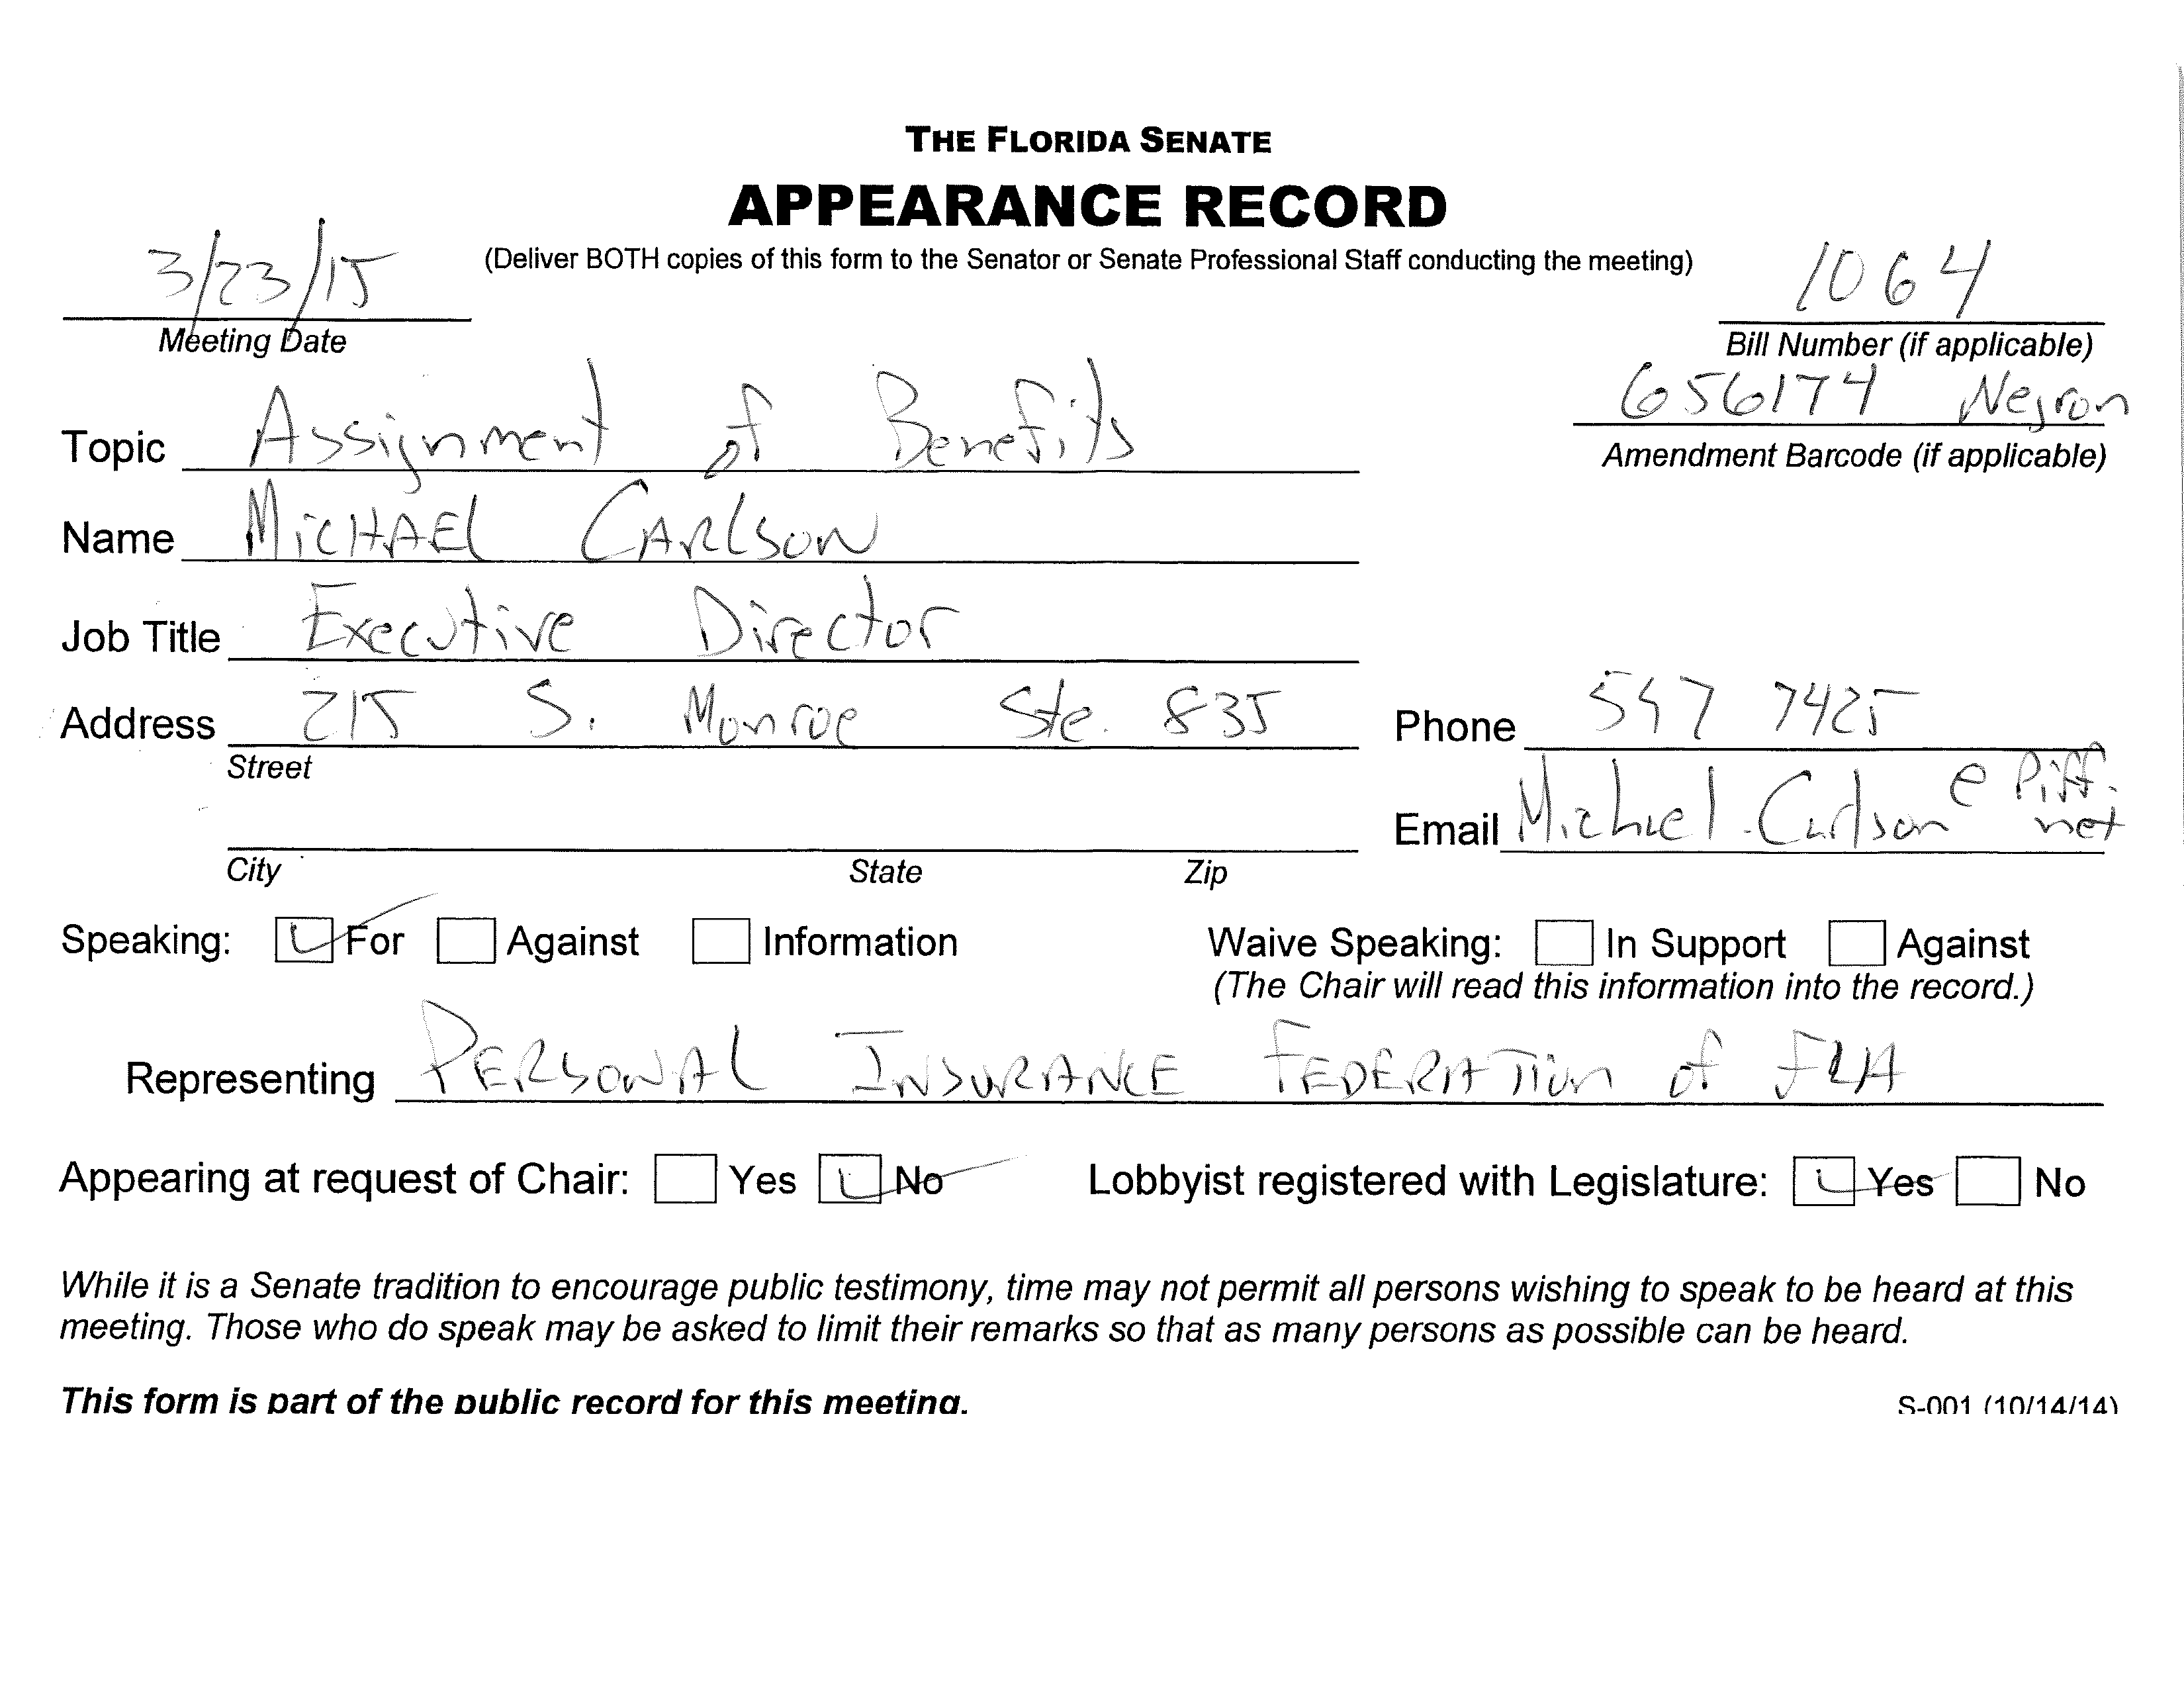 THE FLORIDA SENATE
APPEARANCE RECORD
(Deliver BOTH copies of this form to the Senator or Senate Professional Staff conducting the meeting)
3/23/15
Meeting Date
1064
Bill Number (if applicable)
656174 Negron
Amendment Barcode (if applicable)
Topic Assignment of Benefits
Name MiCHAEl CARlSON
Job Title Executive Director
Address 215 S. Monroe Ste. 835
Street
Phone 597 7425
Email Michael.Carlson@piff.net
City State Zip
Speaking: For Against Information
Waive Speaking: In Support Against
(The Chair will read this information into the record.)
Representing PERSONAL INSURANCE FEDERATION of FLA
Appearing at request of Chair: Yes No Lobbyist registered with Legislature: Yes No
While it is a Senate tradition to encourage public testimony, time may not permit all persons wishing to speak to be heard at this
meeting. Those who do speak may be asked to limit their remarks so that as many persons as possible can be heard.
This form is part of the public record for this meeting.
S-001 (10/14/14)